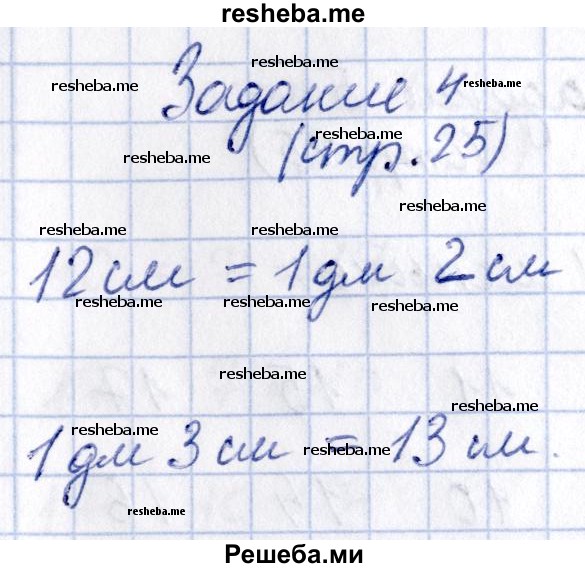 resheba.me
resheba.me resheba.me
Задание 4
resheba.me
resheba.me
(стр. 25)
resheba.me
resheba.me resheba.me
12 см = 1 дм 2 см
resheba.me resheba.me resheba.me
resheba.me
resheba.me
resheba.me
1 дм 3 см = 13 см.
resheba.me
resheba.me
Решеба.ми